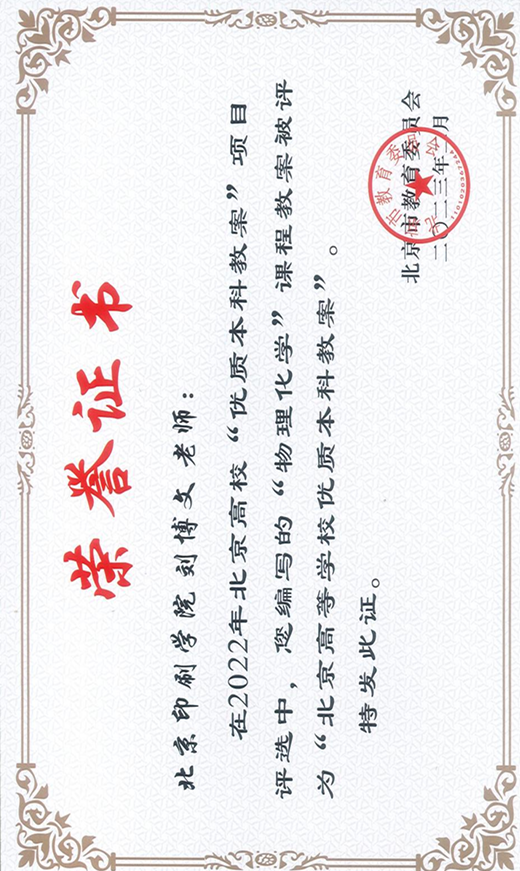 荣誉证书
北京印刷学院刘博文老师：
在2022年北京高校“优质本科教案”项目
评选中，您编写的“物理化学”课程教案被评
为“北京高等学校优质本科教案”。
特发此证。
北京市教育委员会
二〇二三年一月